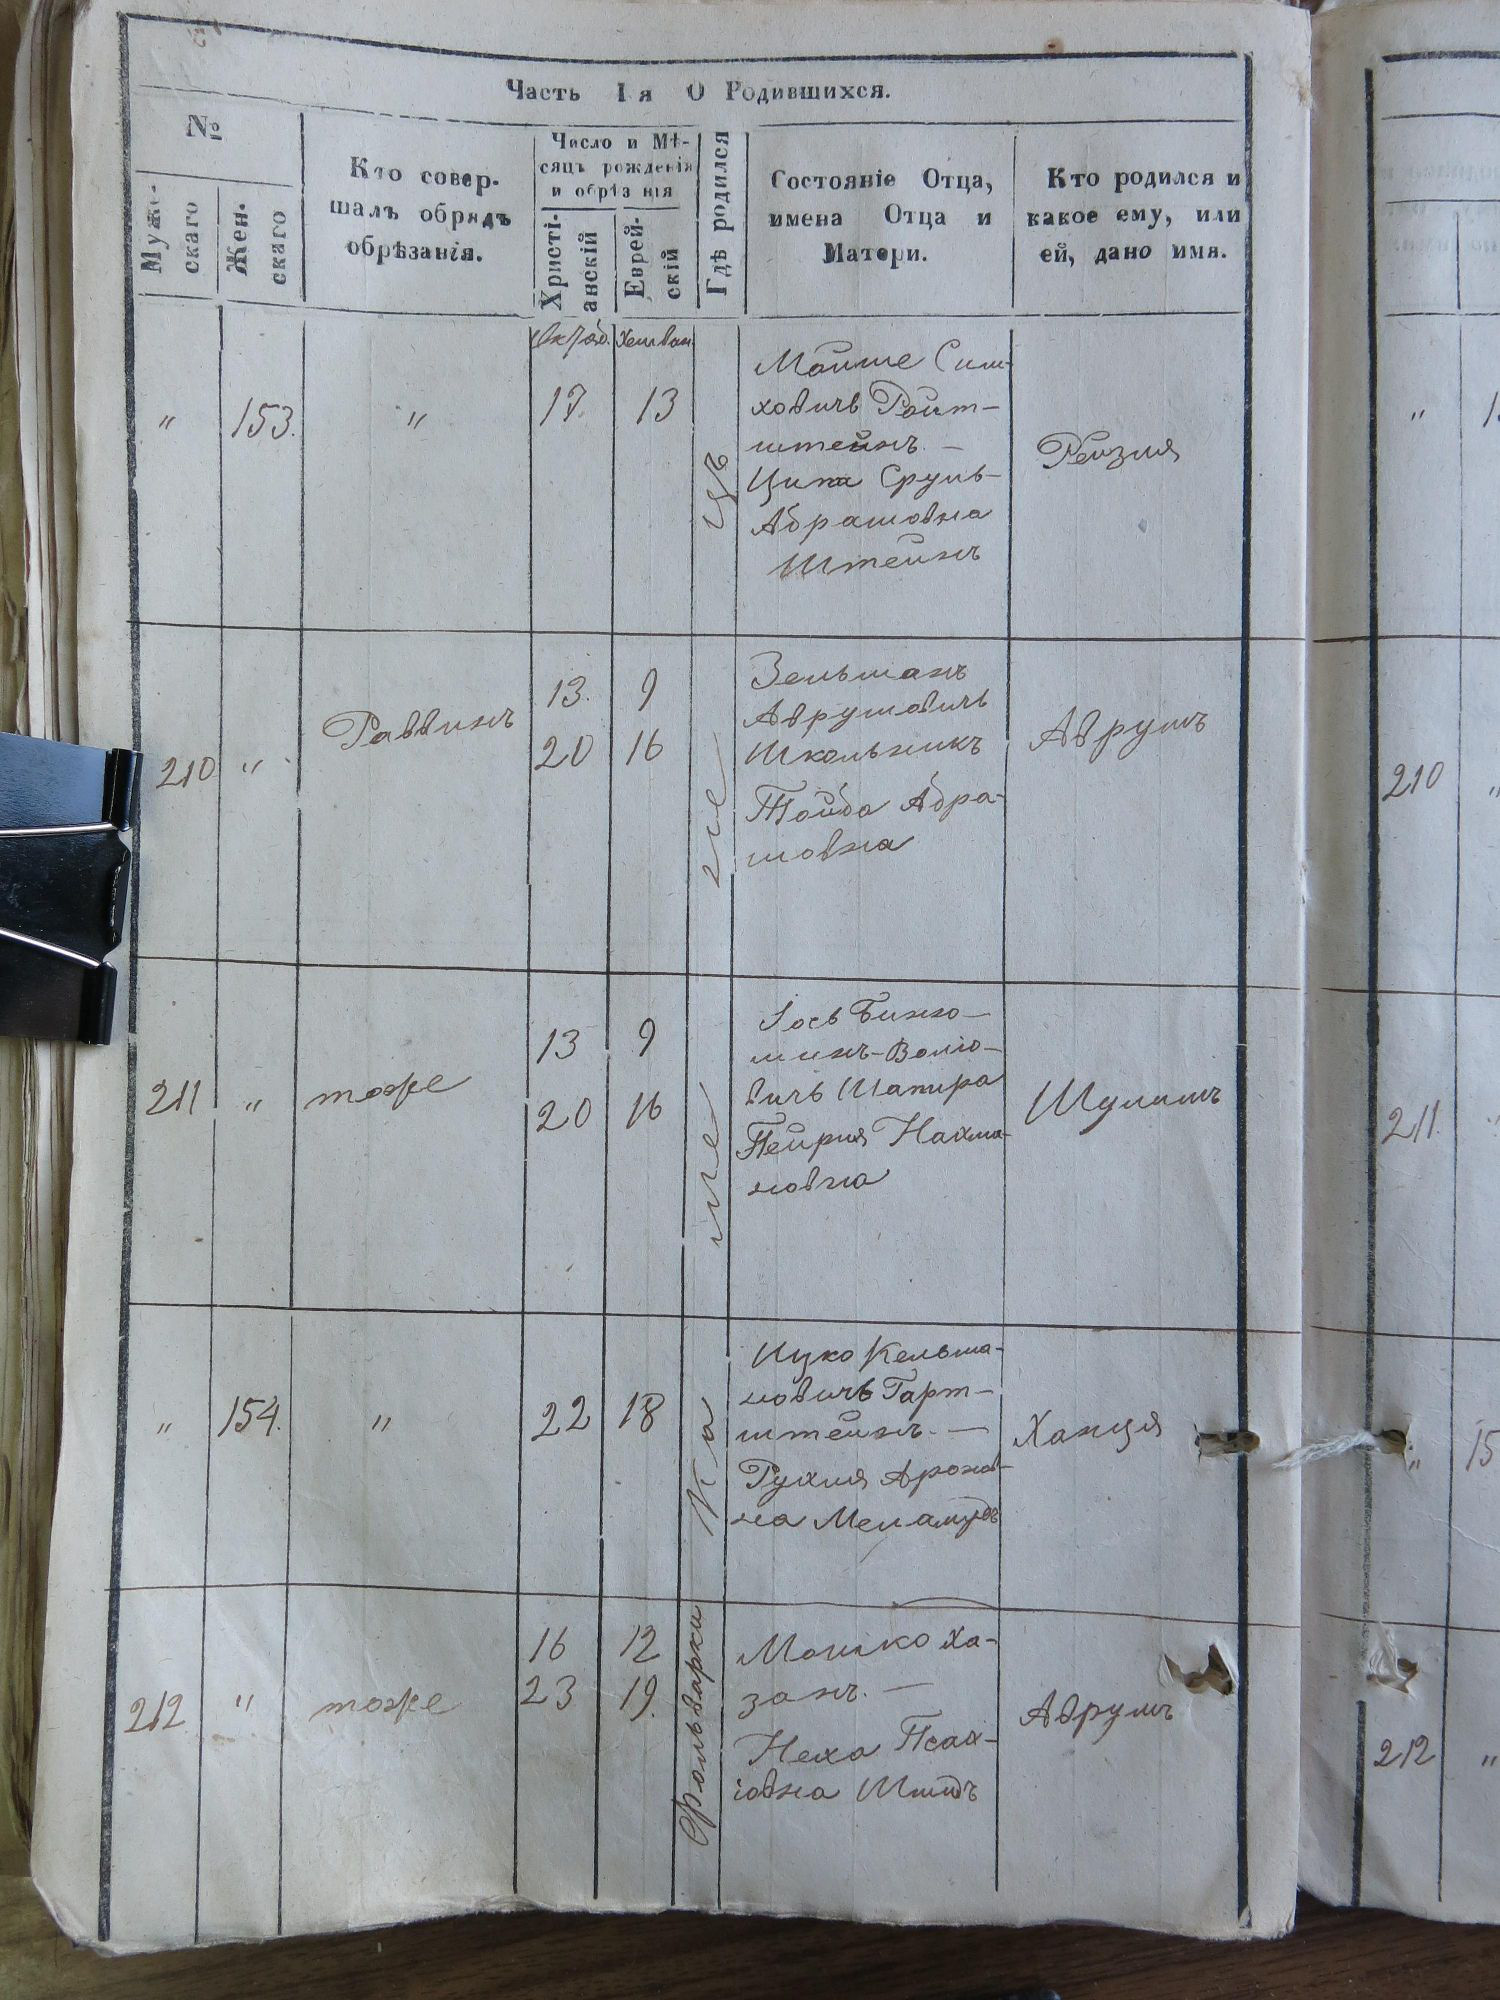 Часть Iя О Родившихся.
№
Мужескаго
Женскаго
Кто совершалъ обрядъ обрѣзанія.
Число и Мѣсяцъ рожденія и обрѣз нія
Христіанскій
Еврейскій
Гдѣ родился
Состояніе Отца, имена Отца и Матери.
Кто родился и какое ему, или ей, дано имя.
Октяб. Хешван.
" 153. " 17. 13
Мойше Сим-
ховичъ Ройт-
штейнъ. —
Ципа Сруль-
Абрамовна
Штейнъ
Рейзля
210 " Раввинъ
13. 9
20 16
Зельманъ
Аврумовичъ
Школьникъ
Тойба Абра-
мовна
Аврумъ
211 " тоже
13 9
20 16
Іось Бинио-
минъ-Волю-
вичъ Шапира
Пейрля Нахма-
новна
Шулимъ
" 154. " 22 18
Ицко Кельма-
новичъ Гарт-
штейнъ. —
Рухля Аронов-
на Меламудъ
Ханця
212 " тоже
16 12
23 19.
Фольварки
Мошко Ха-
занъ. —
Неха Псах-
іовна Шмидъ
Аврумъ
210 "
211.
212 "